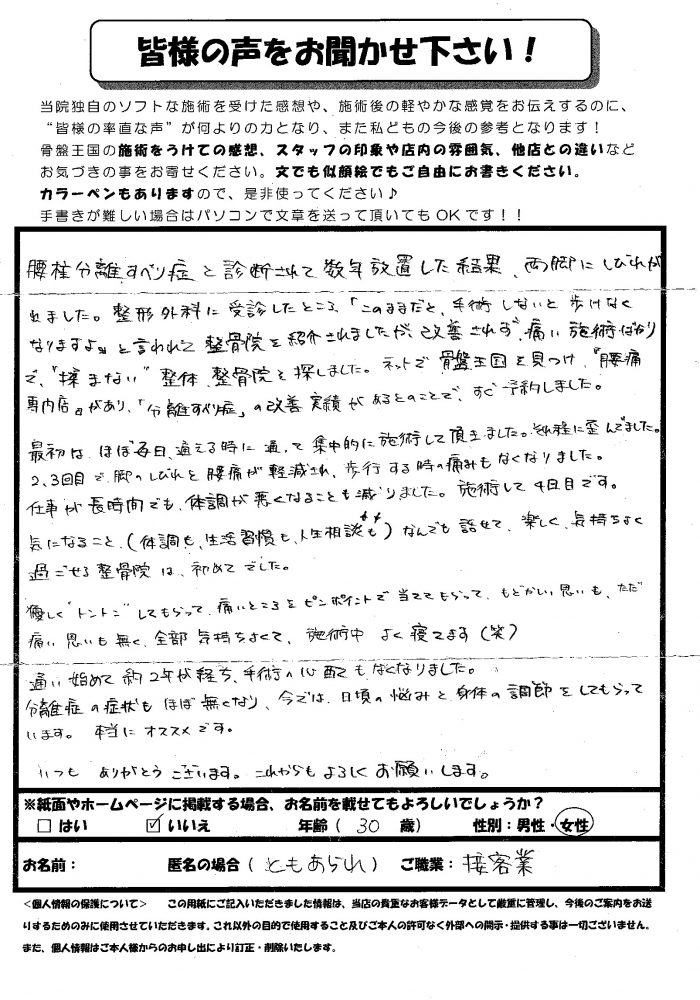 皆様の声をお聞かせ下さい！
当院独自のソフトな施術を受けた感想や、施術後の軽やかな感覚をお伝えするのに、
“皆様の率直な声”が何よりの力となり、また私どもの今後の参考となります！
骨盤王国の施術をうけての感想、スタッフの印象や店内の雰囲気、他店との違いなど
お気づきの事をお寄せください。文でも似顔絵でもご自由にお書きください。
カラーペンもありますので、是非使ってください♪
手書きが難しい場合はパソコンで文章を送って頂いてもOKです！！
腰椎分離すべり症と診断されて数年放置した結果、両脚にしびれが
出ました。整形外科に受診したところ「このままだと、手術しないと歩けなく
なりますよ」と言われて整骨院を紹介されましたが、改善されず、痛い施術ばかり
で、“揉まない”整体、整骨院を探しました。ネットで骨盤王国を見つけ、『腰痛
専門店』があり、「分離すべり症」の改善実績があるとのことで、すぐ予約しました。
最初は、ほぼ毎日、通える時に通って集中的に施術して頂きました。それ程に歪んでました。
2、3回目で、脚のしびれと腰痛が軽減され、歩行する時の痛みもなくなりました。
仕事が長時間でも、体調が悪くなることも減りました。施術して4日目です。
気になること、(体調も、生活習慣も、人生相談も)なんでも話せて、楽しく、気持ちよく
過ごせる整骨院は、初めてでした。
優しく“トントン”してもらって、痛いところをピンポイントで当ててもらって、もどかしい思いも、ただ
痛い思いも無く、全部気持ちよくて、施術中よく寝てます(笑)
通い始めて約2年が経ち、手術の心配もなくなりました。
分離症の症状もほぼ無くなり、今では、日頃の悩みと身体の調節をしてもらって
います。本当にオススメです。
いつもありがとうございます。これからもよろしくお願いします。
※紙面やホームページに掲載する場合、お名前を載せてもよろしいでしょうか？
□ はい ☑ いいえ 年齢（ 30 歳） 性別：男性・女性
お名前： 匿名の場合（ともあられ） ご職業：接客業
＜個人情報の保護について＞ この用紙にご記入いただきました情報は、当店の貴重なお客様データとして厳重に管理し、今後のご案内をお送
りするためのみに使用させていただきます。これ以外の目的で使用すること及びご本人の許可なく外部への開示・提供する事は一切ございません。
また、個人情報はご本人様からのお申し出により訂正・削除いたします。